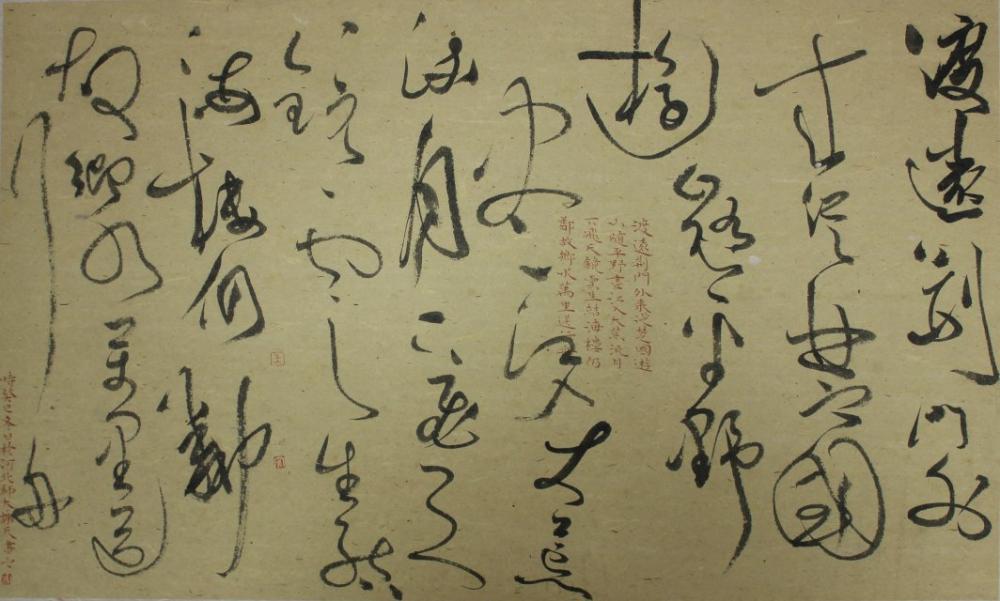 渡遠荆門外
来從楚國
遊山隨平野
盡江入大荒
流月下飛天
鏡雲生結
海樓仍鄰
故鄉水萬里送
行舟
渡遠荆門外来從楚國遊
山隨平野盡江入大荒流月
下飛天鏡雲生結海樓仍
鄰故鄉水萬里送行舟
時癸巳冬日於河北師大